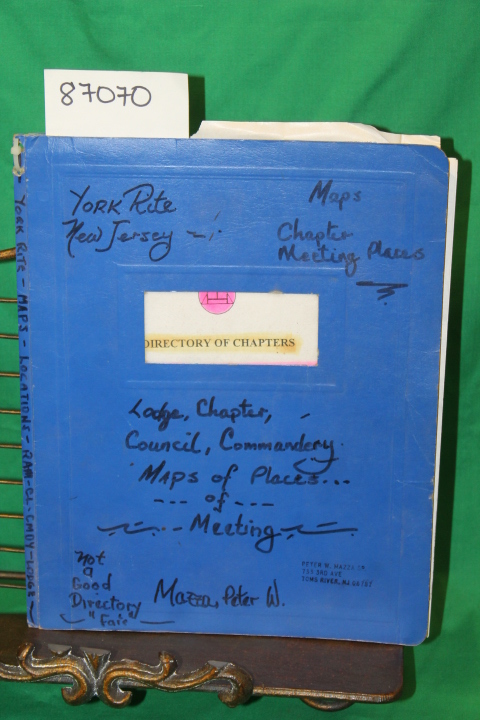 87070
York Rite
New Jersey
Maps
Chapter
Meeting Places
DIRECTORY OF CHAPTERS
Lodge, Chapter,
Council, Commandery
Maps of Places...
--- of ---
Meeting
Not
a
Good
Directory
"Fair"
Mazza, Peter W.
PETER W. MAZZA JR.
3RD AVE
TOMS RIVER, NJ
YORK RITE - MAPS - LOCATIONS - RAM - CMDY - LODGE